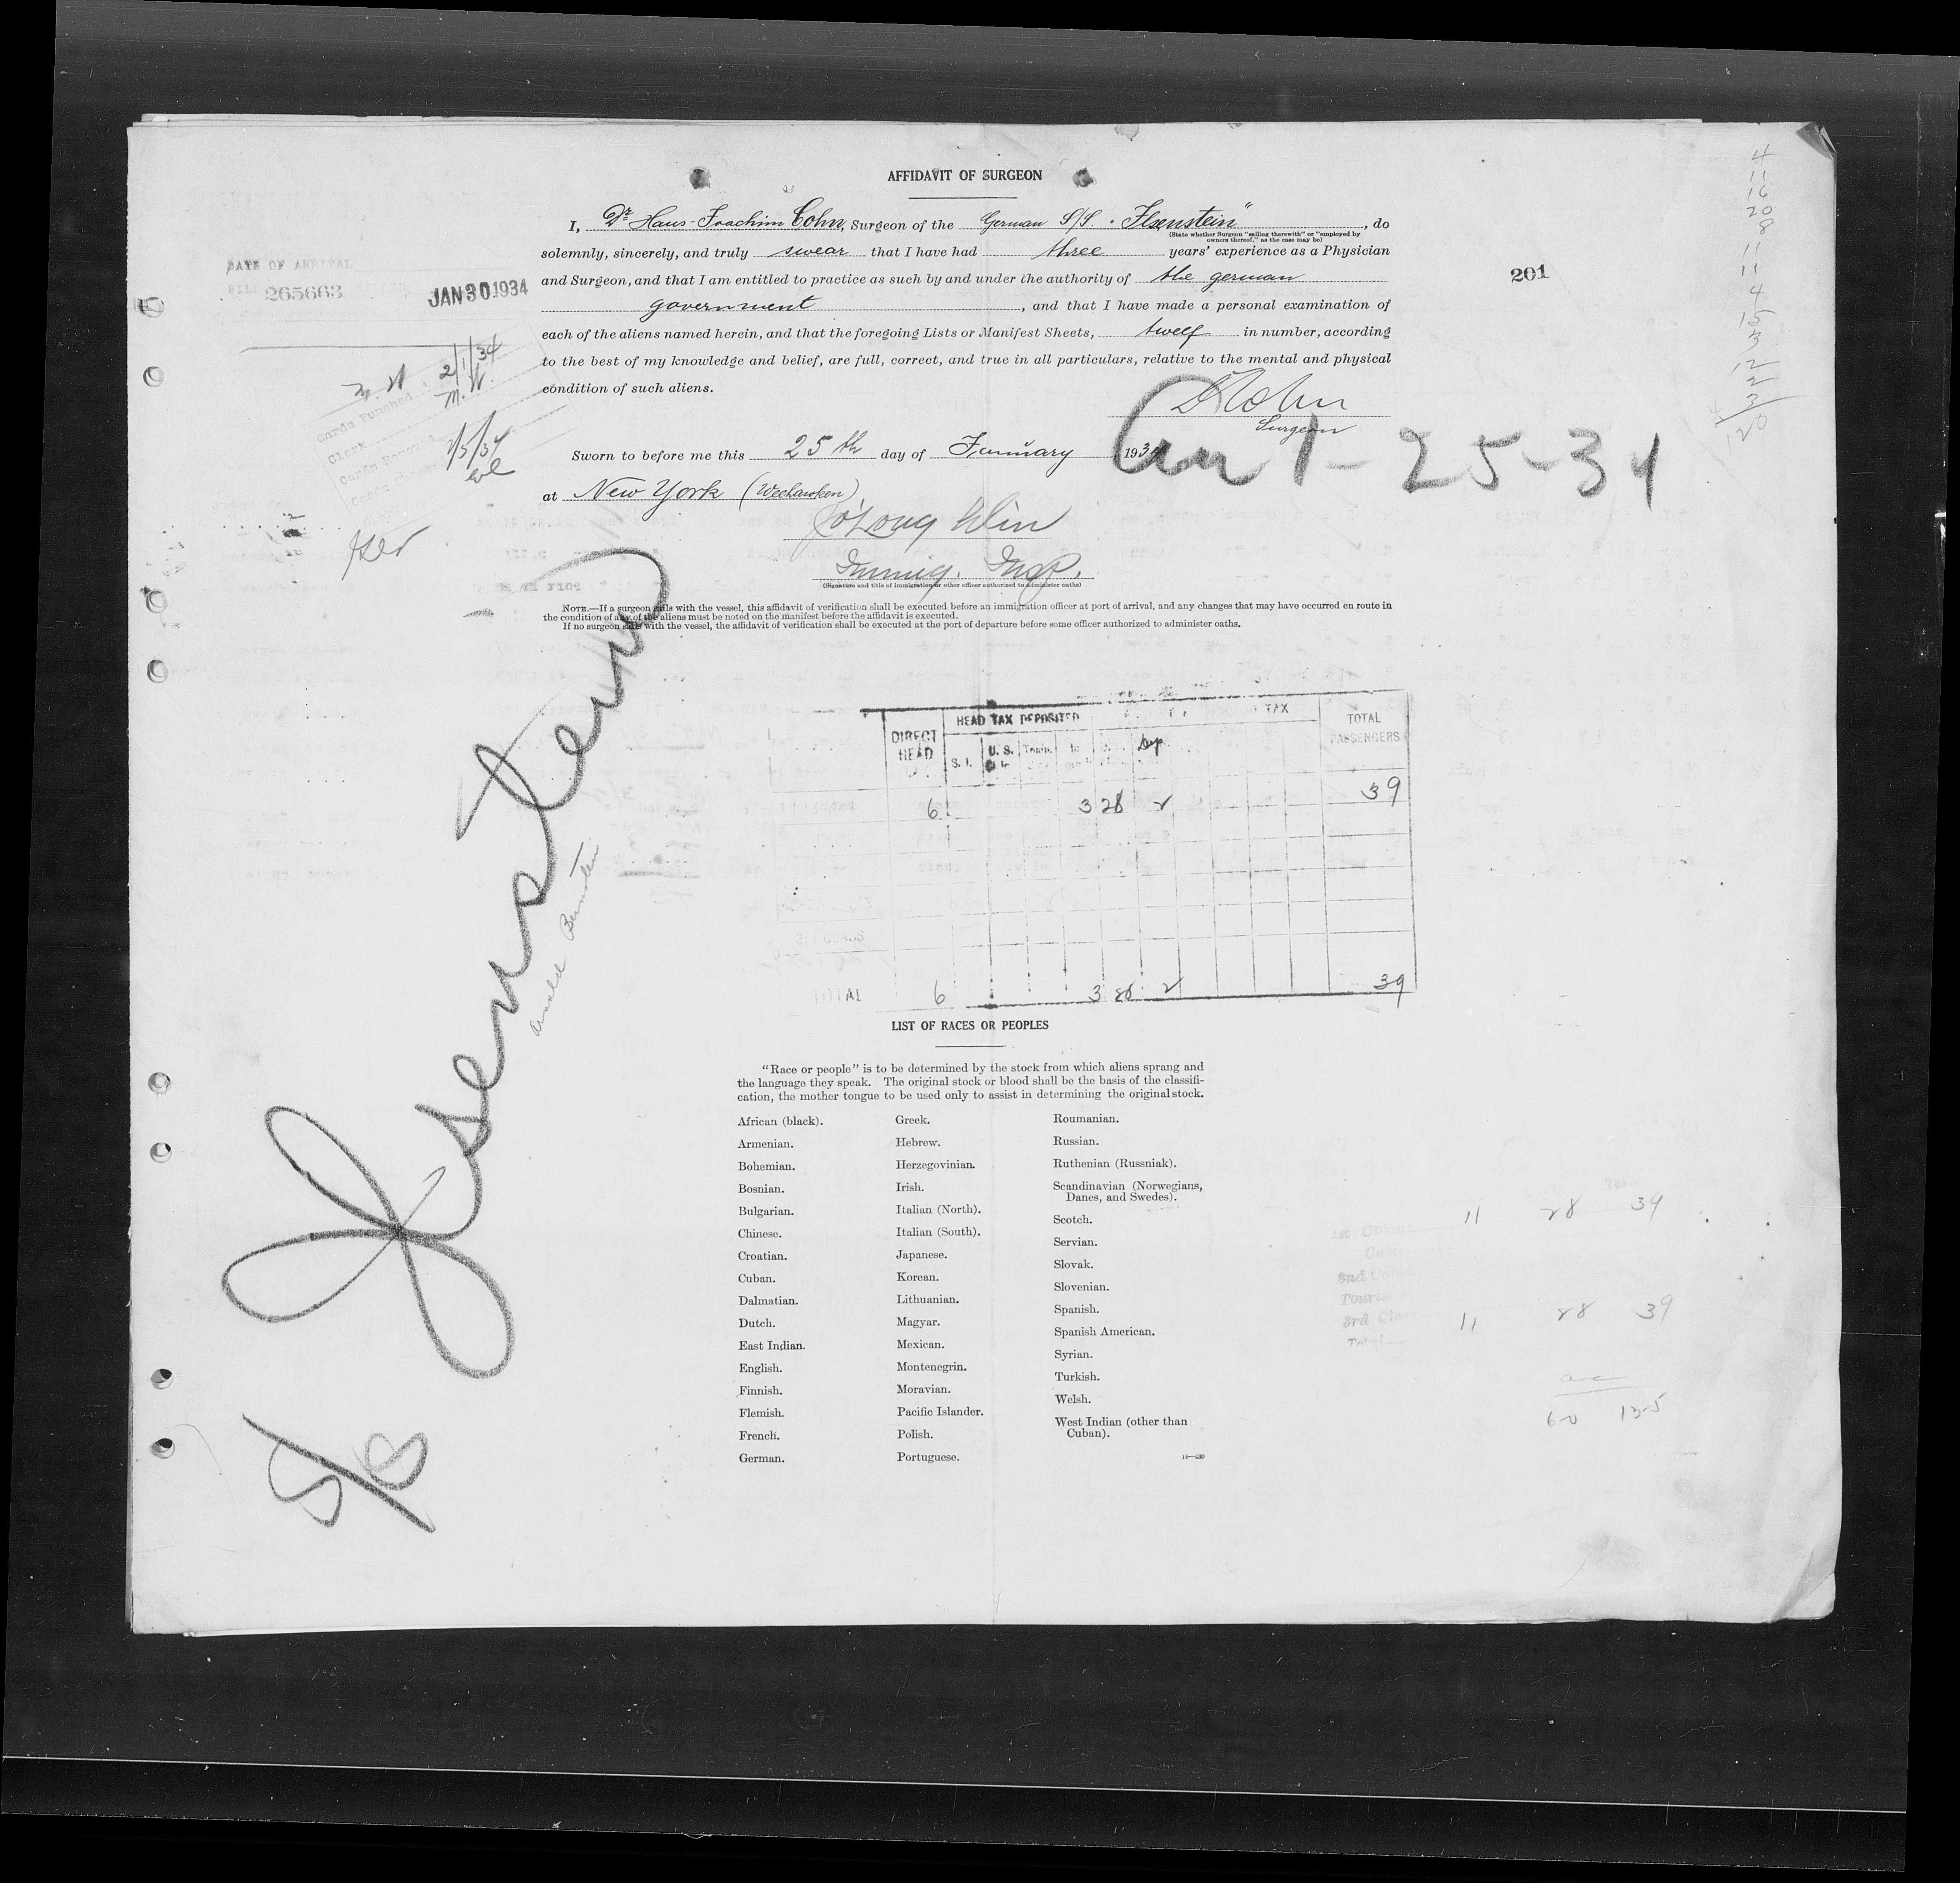 AFFIDAVIT OF SURGEON
I, Dr Hans-Joachim Cohn, Surgeon of the German S/S. "Ilsenstein", do
(State whether Surgeon "sailing therewith" or "employed by
owners thereof," as the case may be)
solemnly, sincerely, and truly swear that I have had three years' experience as a Physician
and Surgeon, and that I am entitled to practice as such by and under the authority of the german
government, and that I have made a personal examination of
each of the aliens named herein, and that the foregoing Lists or Manifest Sheets, twelf in number, according
to the best of my knowledge and belief, are full, correct, and true in all particulars, relative to the mental and physical
condition of such aliens.
DrCohn
Surgeon
Sworn to before me this 25th day of January 1934
at New York (Weehawken)
Immig. Insp.
(Signature and title of immigration or other officer authorized to administer oaths)
NOTE.—If a surgeon sails with the vessel, this affidavit of verification shall be executed before an immigration officer at port of arrival, and any changes that may have occurred en route in
the condition of any of the aliens must be noted on the manifest before the affidavit is executed.
If no surgeon sails with the vessel, the affidavit of verification shall be executed at the port of departure before some officer authorized to administer oaths.
DATE OF ARRIVAL
265663
JAN 30 1934
201
2/1/34
M.W.
Cards Punched
Clerk
1-25-34
S/S Ilsenstein
Arnold Bernstein
4
11
16
20
8
11
11
4
15
3
12
2
3
120
DIRECT HEAD
HEAD TAX DEPOSITED
TAX
TOTAL PASSENGERS
S. I.
U. S.
6 3 28 2 39
TOTAL 6 3 28 2 39
LIST OF RACES OR PEOPLES
"Race or people" is to be determined by the stock from which aliens sprang and
the language they speak. The original stock or blood shall be the basis of the classifi-
cation, the mother tongue to be used only to assist in determining the original stock.
African (black).
Armenian.
Bohemian.
Bosnian.
Bulgarian.
Chinese.
Croatian.
Cuban.
Dalmatian.
Dutch.
East Indian.
English.
Finnish.
Flemish.
French.
German.
Greek.
Hebrew.
Herzegovinian.
Irish.
Italian (North).
Italian (South).
Japanese.
Korean.
Lithuanian.
Magyar.
Mexican.
Montenegrin.
Moravian.
Pacific Islander.
Polish.
Portuguese.
Roumanian.
Russian.
Ruthenian (Russniak).
Scandinavian (Norwegians,
Danes, and Swedes).
Scotch.
Servian.
Slovak.
Slovenian.
Spanish.
Spanish American.
Syrian.
Turkish.
Welsh.
West Indian (other than
Cuban).
11 28 39
Tourist
3rd Class
11 28 39